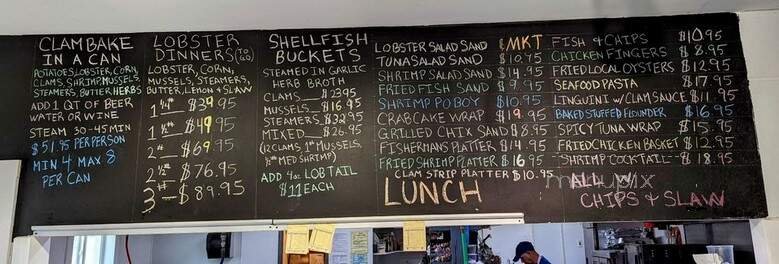 CLAMBAKE
IN A CAN
POTATOES, LOBSTER, CORN,
CLAMS, SHRIMP, MUSSELS,
STEAMERS, BUTTER, HERBS
ADD 1 QT OF BEER
WATER OR WINE
STEAM 30-45 MIN
$51.95 PER PERSON
MIN 4 MAX 8
PER CAN
LOBSTER
DINNERS (TO GO)
LOBSTER, CORN,
MUSSELS, STEAMERS,
BUTTER, LEMON & SLAW
1 1/4# $39.95
1 1/2# $49.95
2# $69.95
2 1/2# $76.95
3# $89.95
SHELLFISH
BUCKETS
STEAMED IN GARLIC
HERB BROTH
CLAMS $23.95
MUSSELS $16.95
STEAMERS $32.95
MIXED $26.95
(12 CLAMS, 1# MUSSELS,
1/2# MED SHRIMP)
ADD 4oz LOB TAIL
$11 EACH
LOBSTER SALAD SAND $MKT
TUNA SALAD SAND $10.95
SHRIMP SALAD SAND $14.95
FRIED FISH SAND $9.95
SHRIMP PO BOY $10.95
CRAB CAKE WRAP $19.95
GRILLED CHIX SAND $8.95
FISHERMANS PLATTER $14.95
FRIED SHRIMP PLATTER $16.95
CLAM STRIP PLATTER $10.95
LUNCH
FISH & CHIPS $10.95
CHICKEN FINGERS $8.95
FRIED LOCAL OYSTERS $12.95
SEAFOOD PASTA $17.95
LINGUINI W/CLAM SAUCE $11.95
BAKED STUFFED FLOUNDER $16.95
SPICY TUNA WRAP $15.95
FRIED CHICKEN BASKET $12.95
SHRIMP COCKTAIL $18.95
ALL W/
CHIPS & SLAW